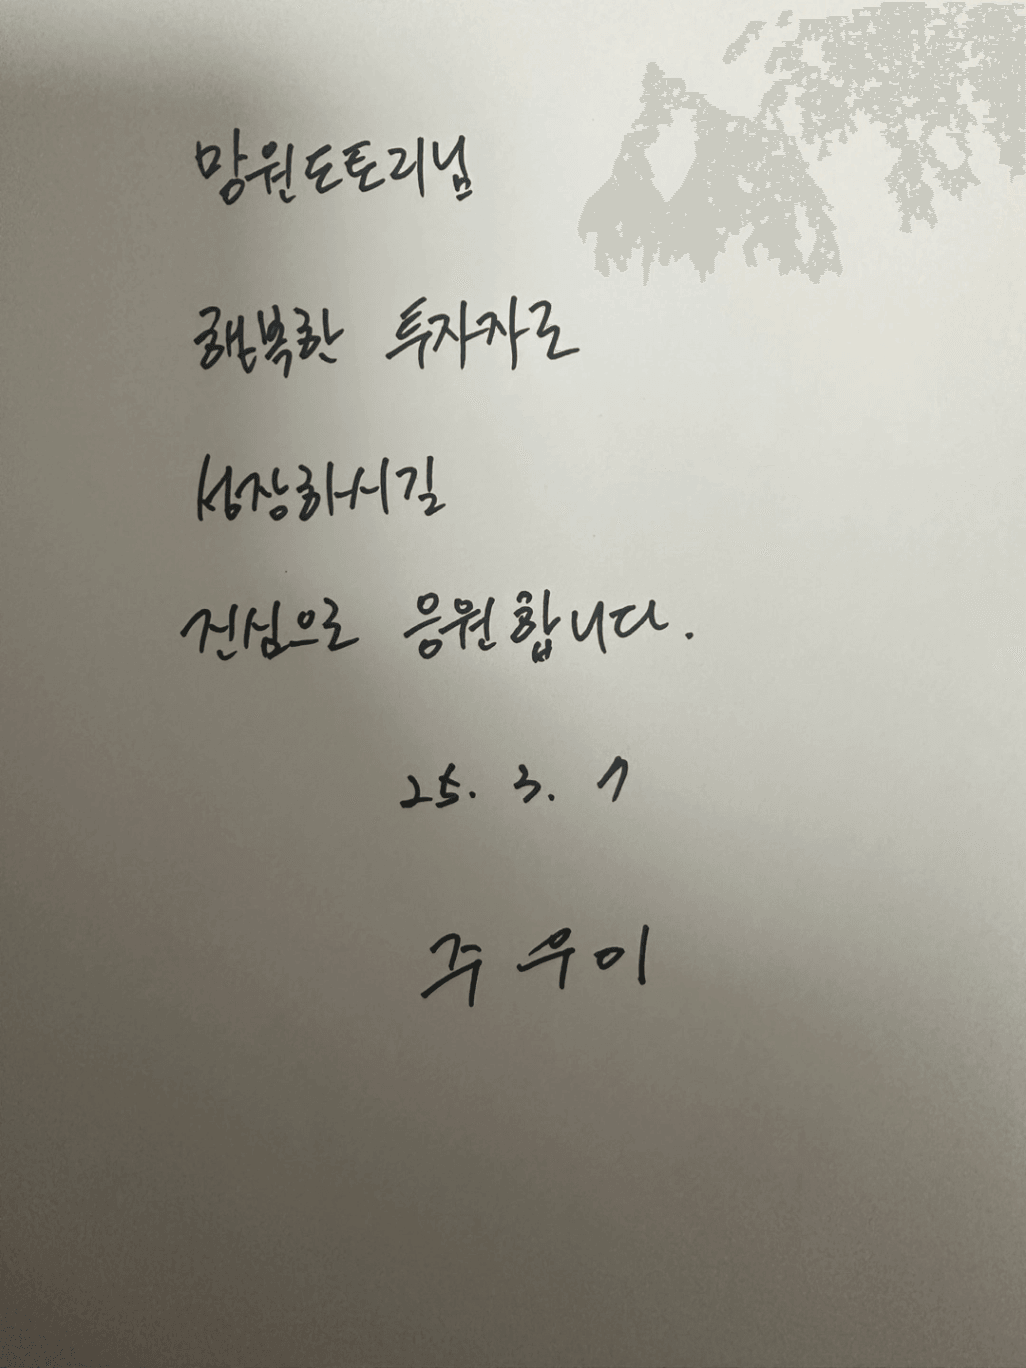 망원도토리님
행복한 투자자로
성장하시길
진심으로 응원합니다.
25. 3. 7
주우이